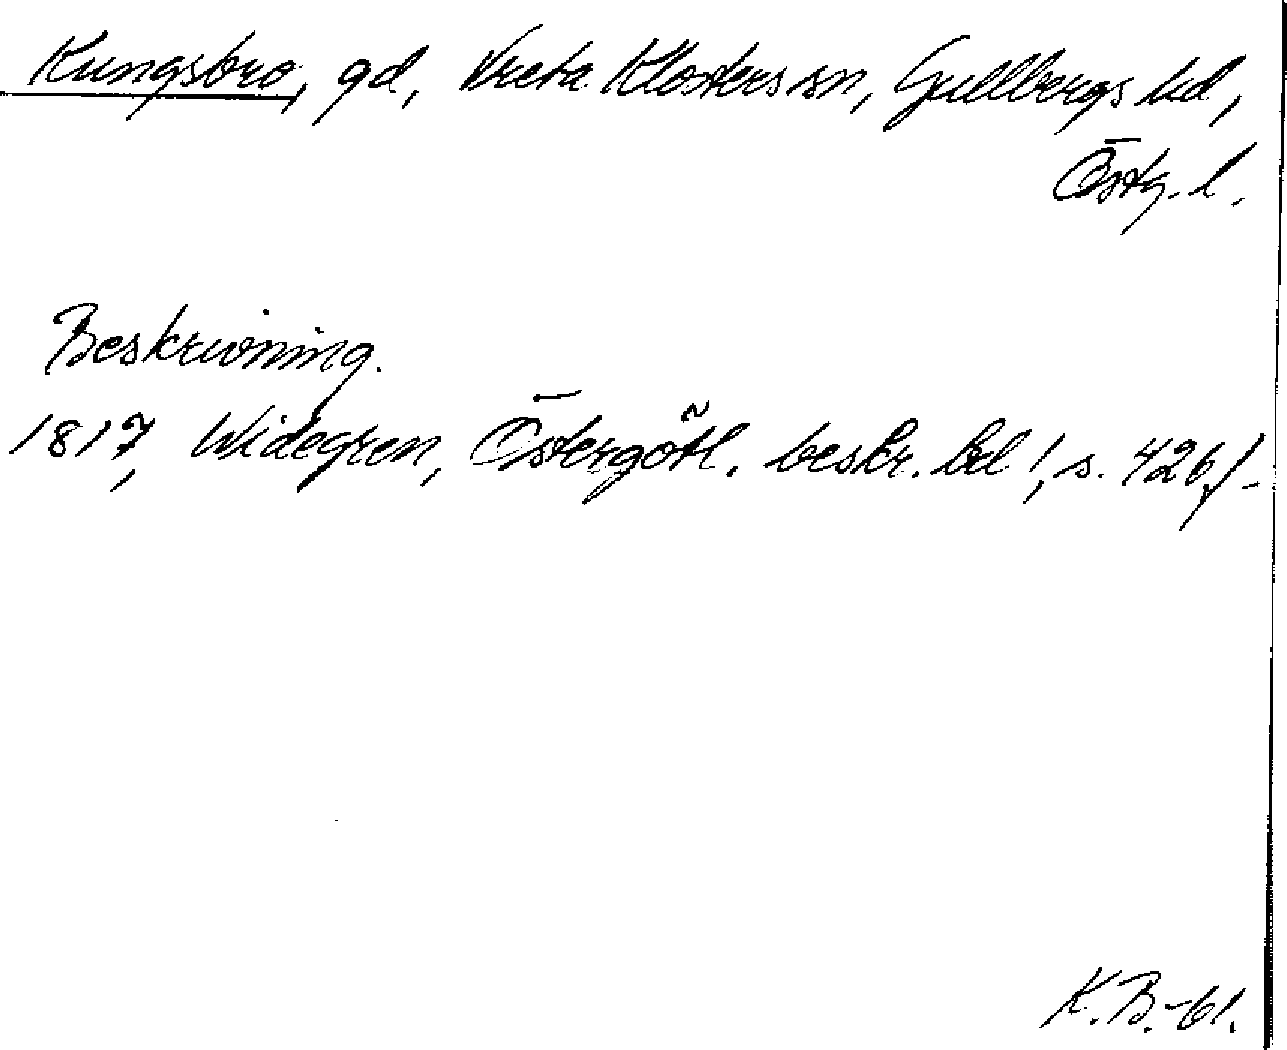 Kungsbro, gd, Vreta Klosters sn, Gullbergs hd,
Östg. l.
Beskrivning.
1817, Widegren, Östergötl. beskr. bd 1, s. 426,/-
K.B.-61.